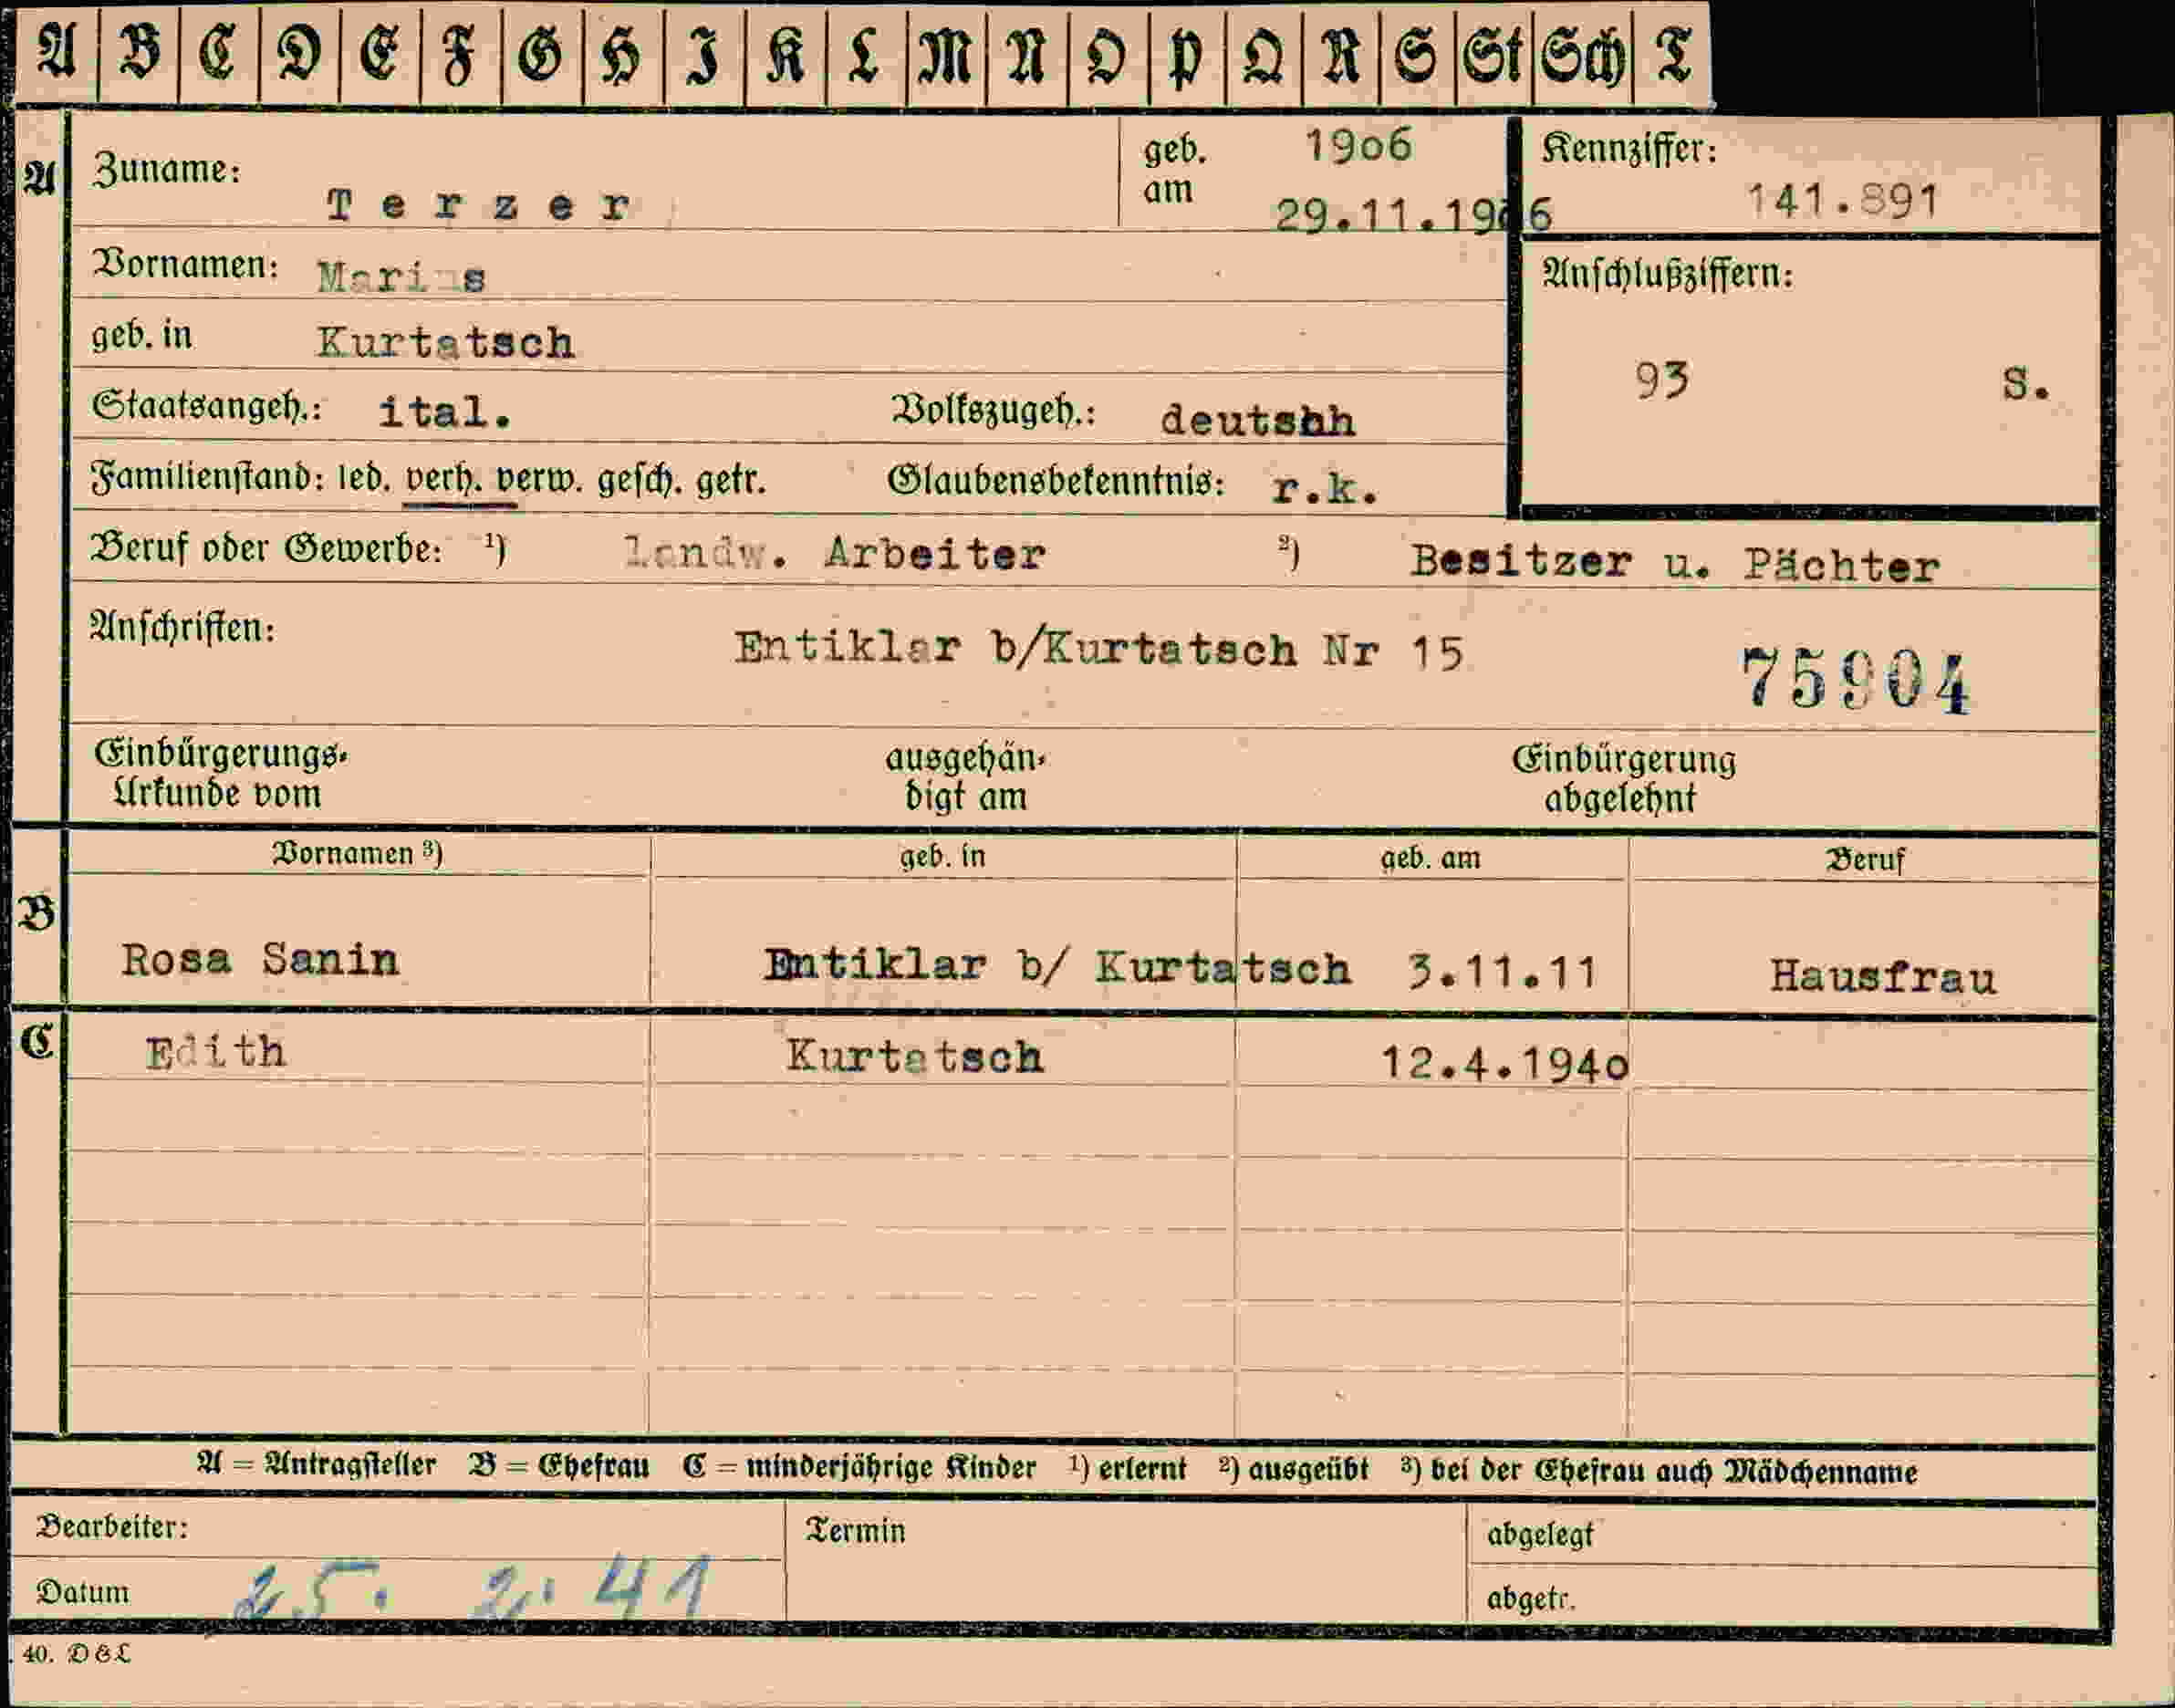 A B C D E F G H I K L M N O P Q R S St Sch T
A Zuname: Terzer geb. am 1906 29.11.1906 Kennziffer: 141.891
Vornamen: Marius Anschlußziffern:
geb. in Kurtatsch
93 S.
Staatsangeh.: ital. Volkszugeh.: deutshh
Familienstand: led. verh. verw. gesch. getr. Glaubensbekenntnis: r.k.
Beruf oder Gewerbe: ¹) landw. Arbeiter ²) Besitzer u. Pächter
Anschriften: Entiklar b/Kurtatsch Nr 15 75904
Einbürgerungs- ausgehän- Einbürgerung
Urkunde vom digt am abgelehnt
Vornamen ³) geb. in geb. am Beruf
B Rosa Sanin Entiklar b/ Kurtatsch 3.11.11 Hausfrau
C Edith Kurtatsch 12.4.1940
A = Antragsteller B = Ehefrau C = minderjährige Kinder ¹) erlernt ²) ausgeübt ³) bei der Ehefrau auch Mädchenname
Bearbeiter: Termin abgelegt
Datum 25. 2. 41 abgetr.
40. D & L